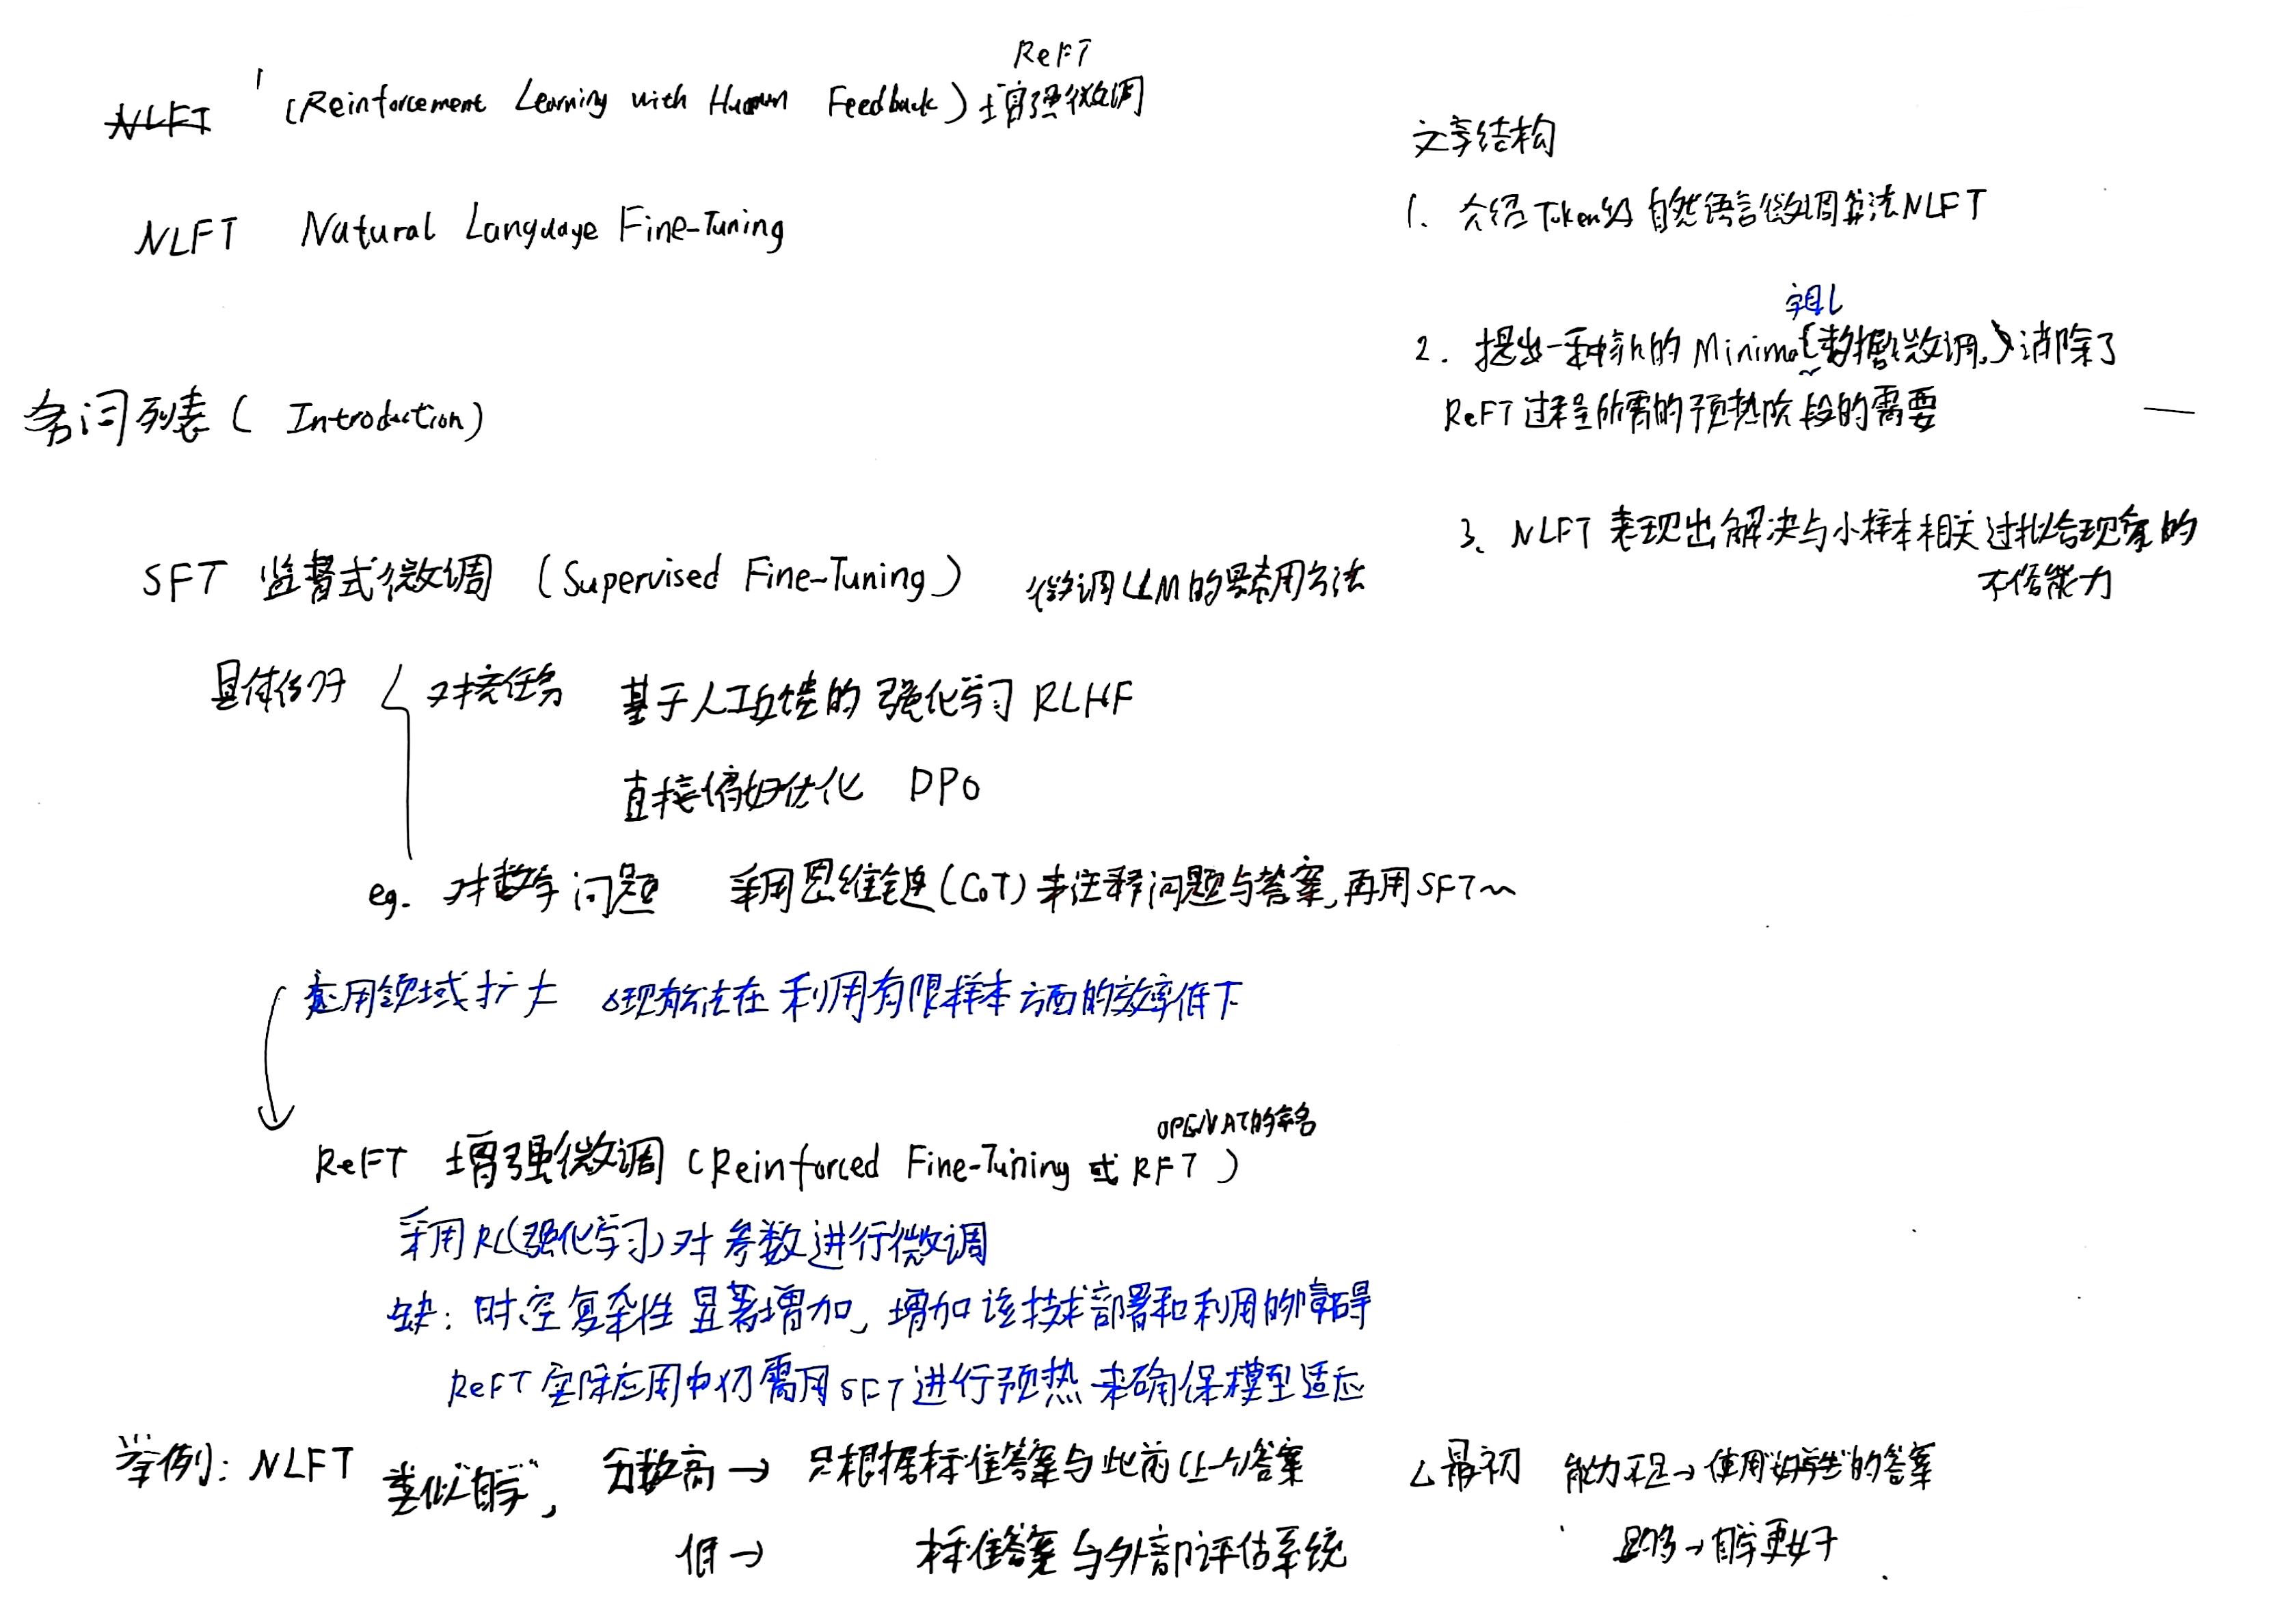 ReFT
NLFT (Reinforcement Learning with Human Feedback) 增强微调
NLFT Natural Language Fine-Tuning
名词列表 ( Introduction )
SFT 监督式微调 (Supervised Fine-Tuning) 微调LLM的最常用方法
具体任务 对接任务 基于人工反馈的 强化学习 RLHF
直接偏好优化 DPO
eg. 对数学问题 采用思维链(CoT)来注释问题与答案,再用SFT~
应用领域扩大 △现有方法在利用有限样本方面的效率低下
OPENAI的命名
ReFT 增强微调 (Reinforced Fine-Tuning 或 RFT )
采用RL(强化学习)对参数进行微调
缺: 时空复杂性显著增加, 增加该技术部署和利用的障碍
ReFT实际应用中仍需用SFT进行预热来确保模型适应
举例: NLFT 类似"自学", 分数高→ 只根据标准答案与此前上一个答案
低→ 标准答案与外部评估系统
△最初 能力不足→使用"好学生"的答案
足够→自学更好
文章结构
1. 介绍Token级自然语言微调算法NLFT
字母l
2. 提出一种新的Minimal(数据微调,)消除了
ReFT过程所需的预热阶段的需要
3、NLFT 表现出解决与小样本相关过拟合现象的
本信能力